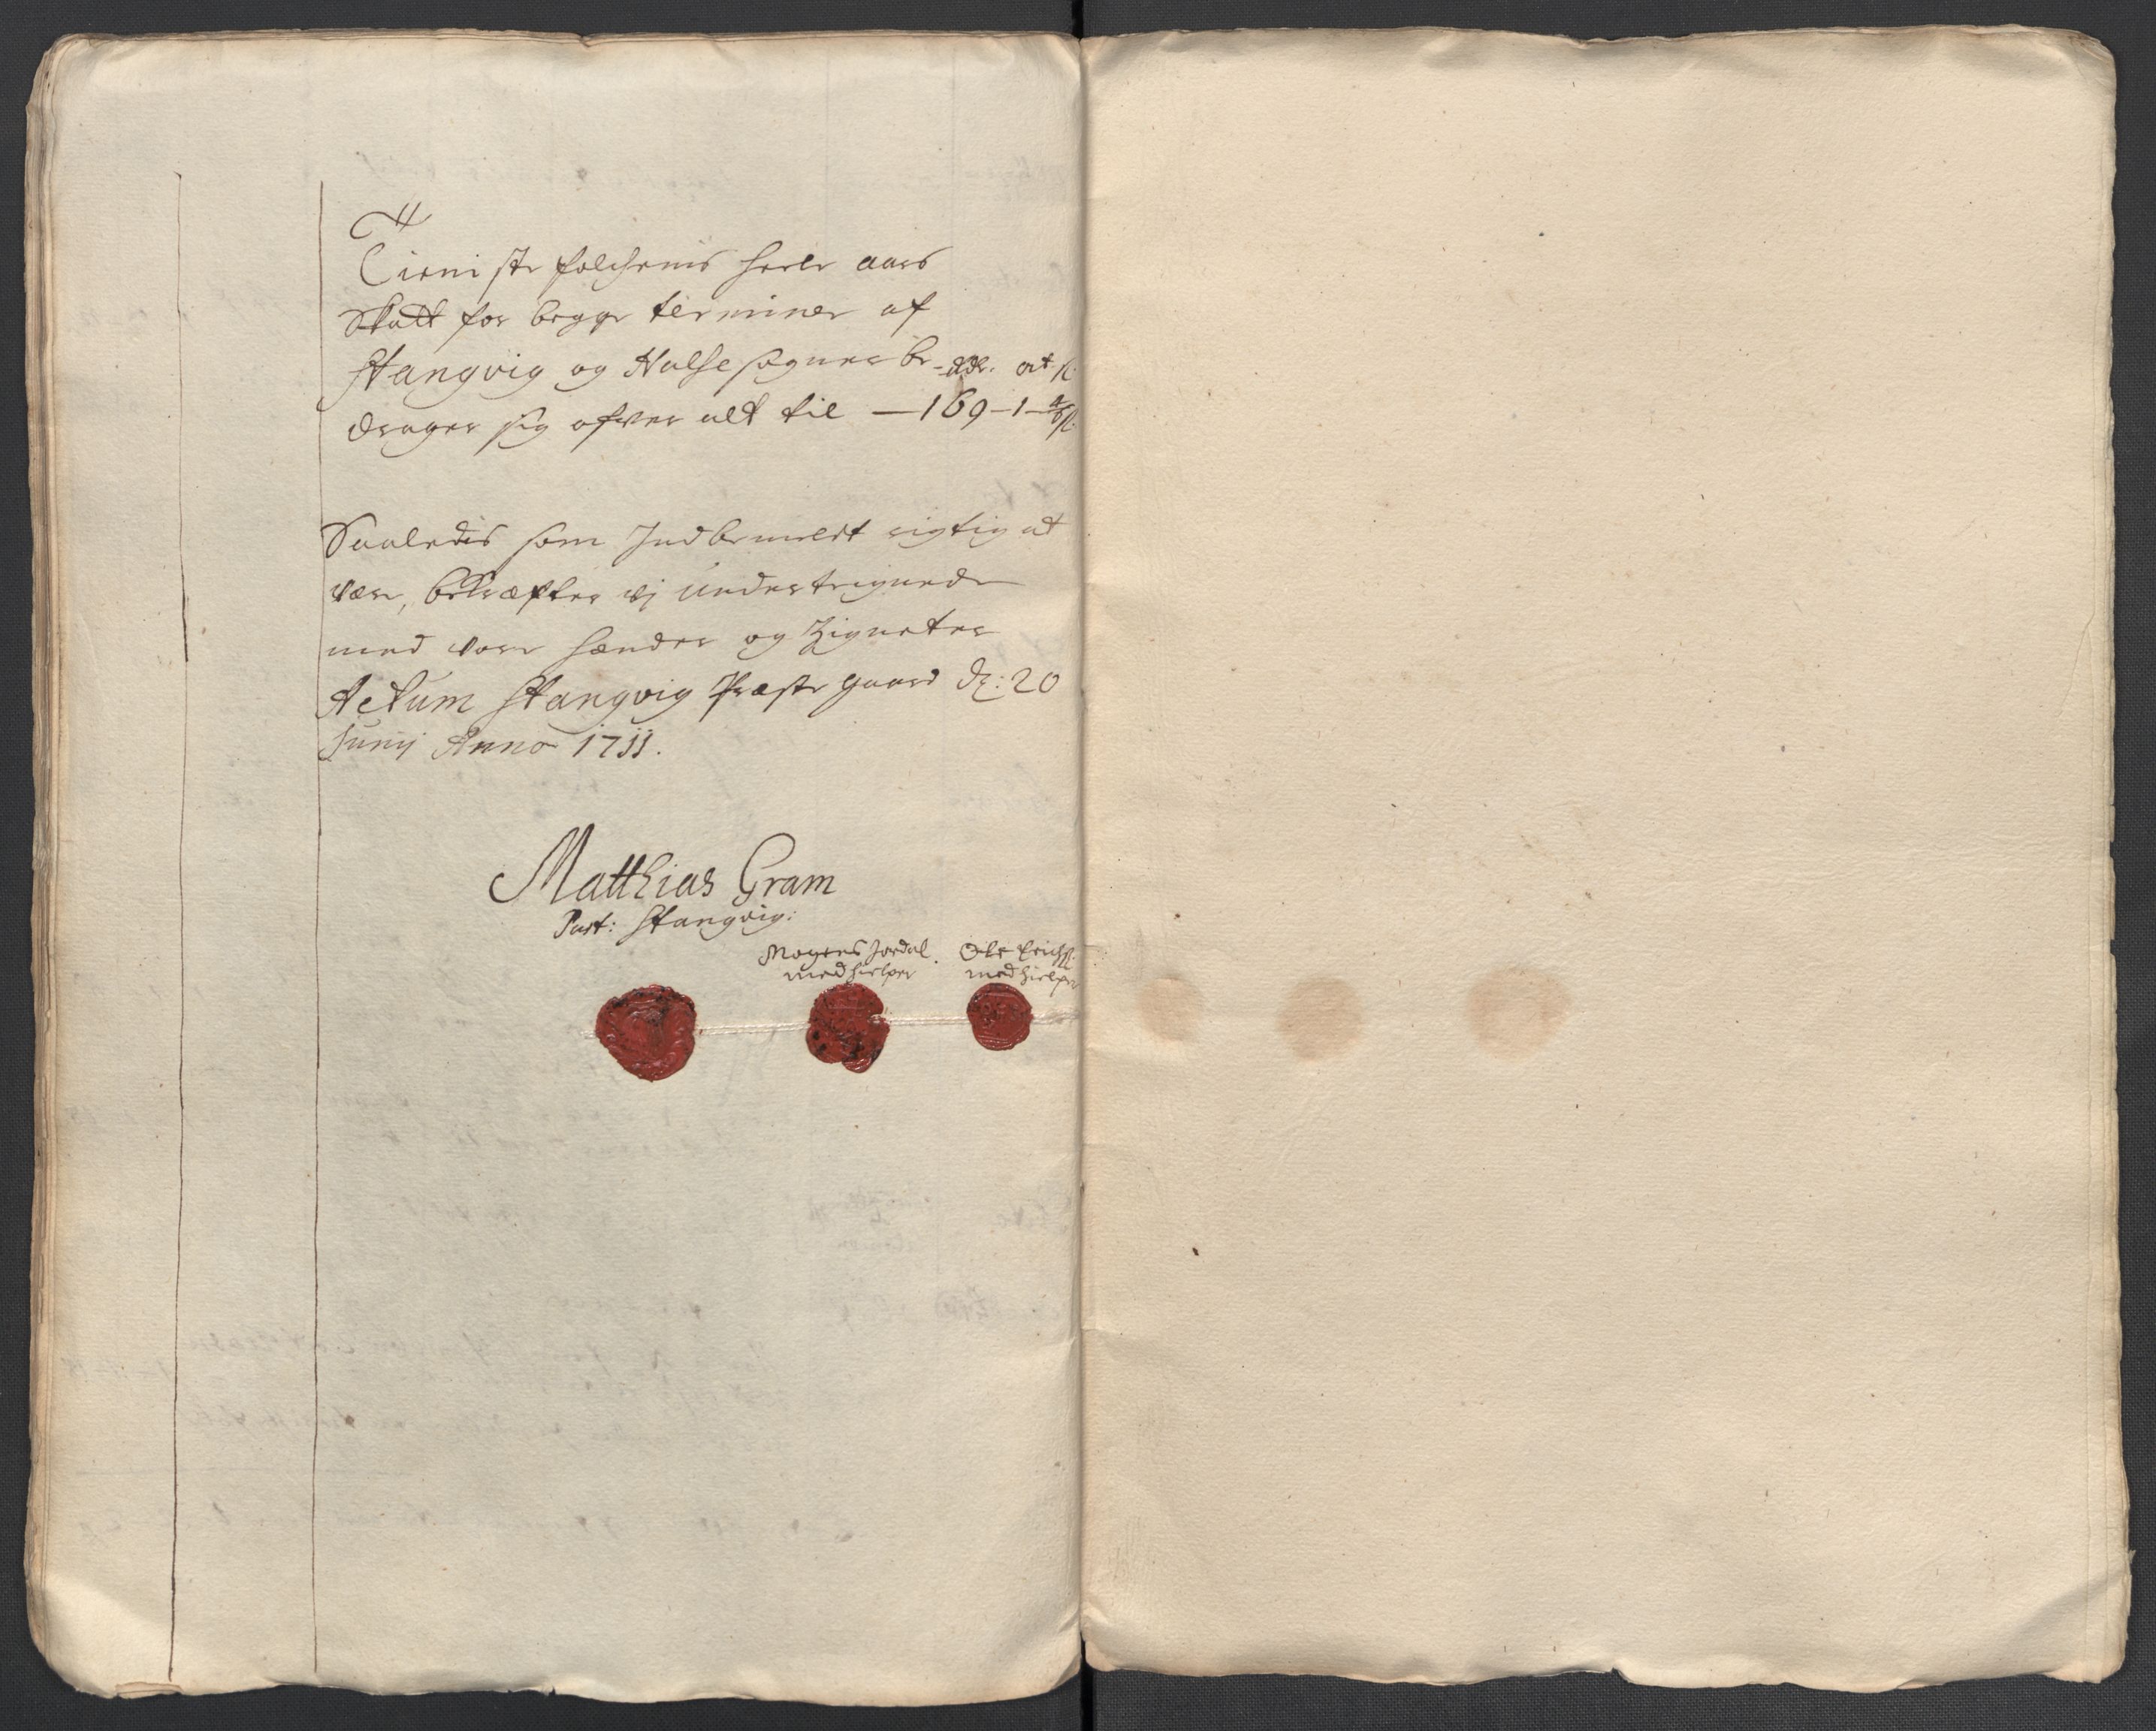 Tieniste folchenis heele aars
Skatt for begge terminer af
Stangvig og Halse sogner be- rdr. ort s
drager sig ofver alt til — 169 – 1 –
Saaledis som Indbemelt rigtig at
være, bekræfter vj underteignede
med vore hænder og Zigneter
Actum Stangvig Præste gaard d: 20
Junij Anno 1711.
Matthias Gram
Past: Stangvig:
Mogens Jordal. Ole Erichs:
medhielper medhielper